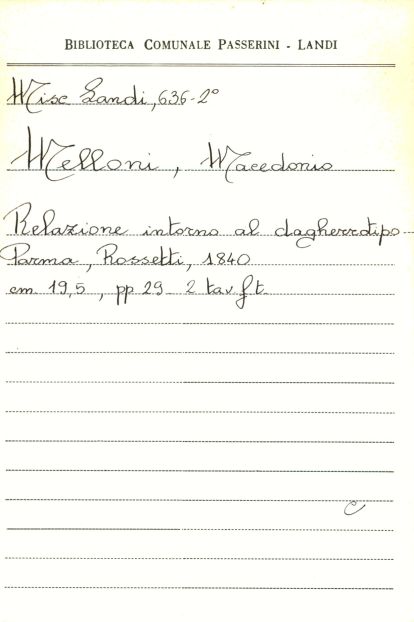 BIBLIOTECA COMUNALE PASSERINI - LANDI
Misc Landi, 636-2°
Melloni, Macedonio
Relazione intorno al dagherrotipo
Parma, Rossetti, 1840
cm 19,5, pp 29 2 tav f t
C